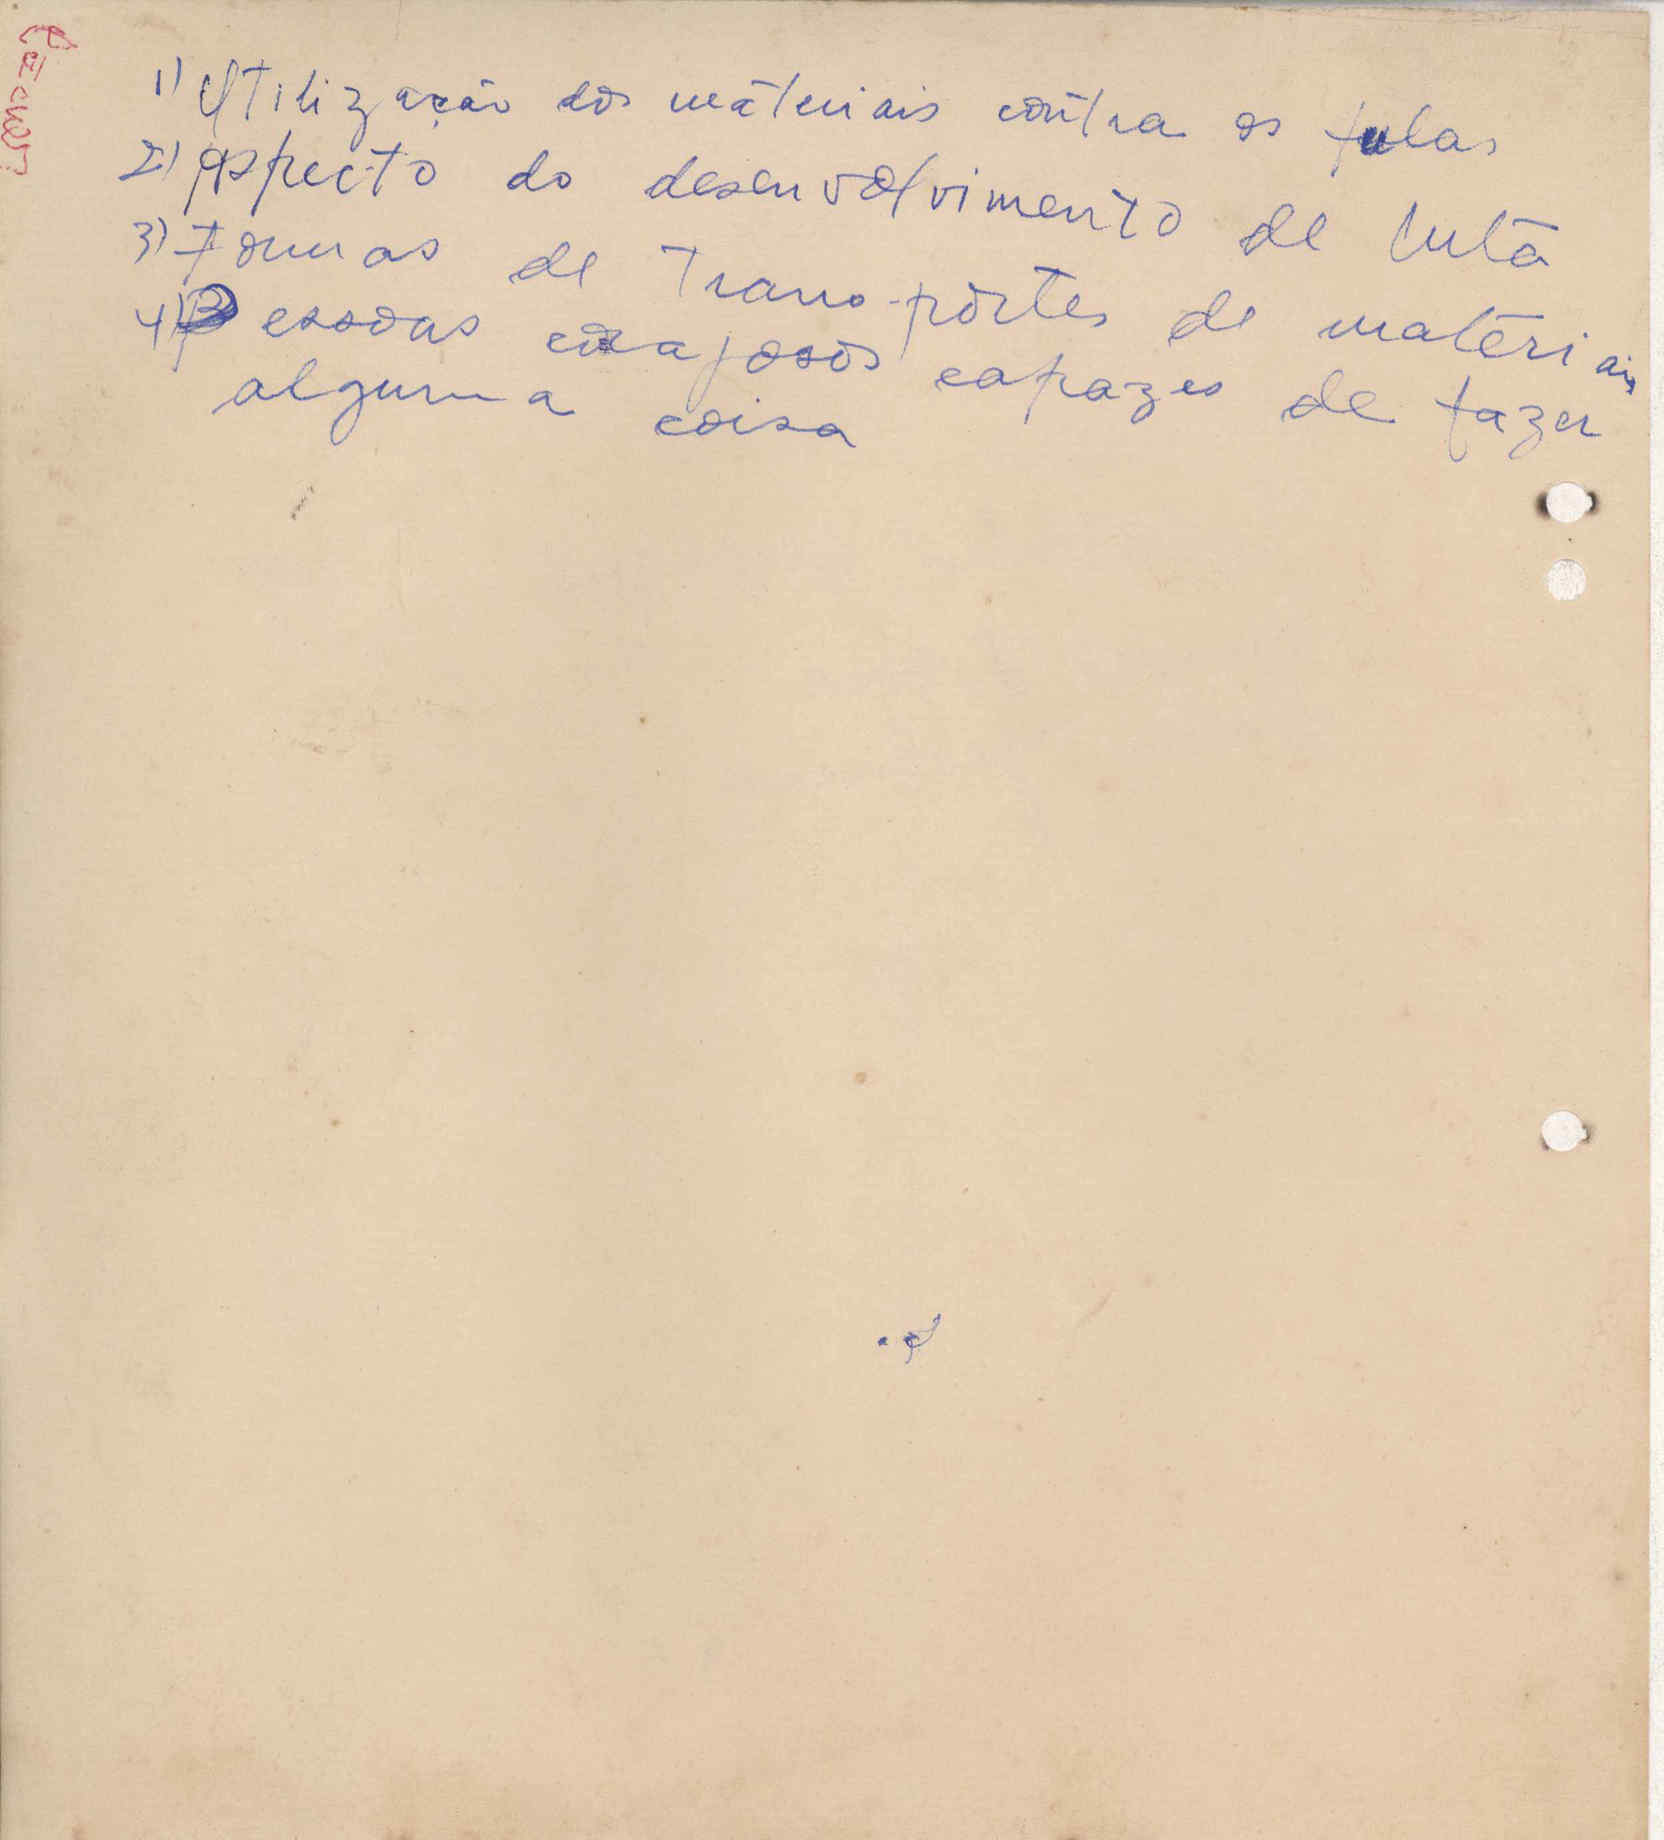 1) Utilização dos materiais contra os fulas
2) Aspecto do desenvolvimento de luta
3) Formas de Trans-portes de materiais
4) Pessoas corajosos capazes de fazer
alguma coisa